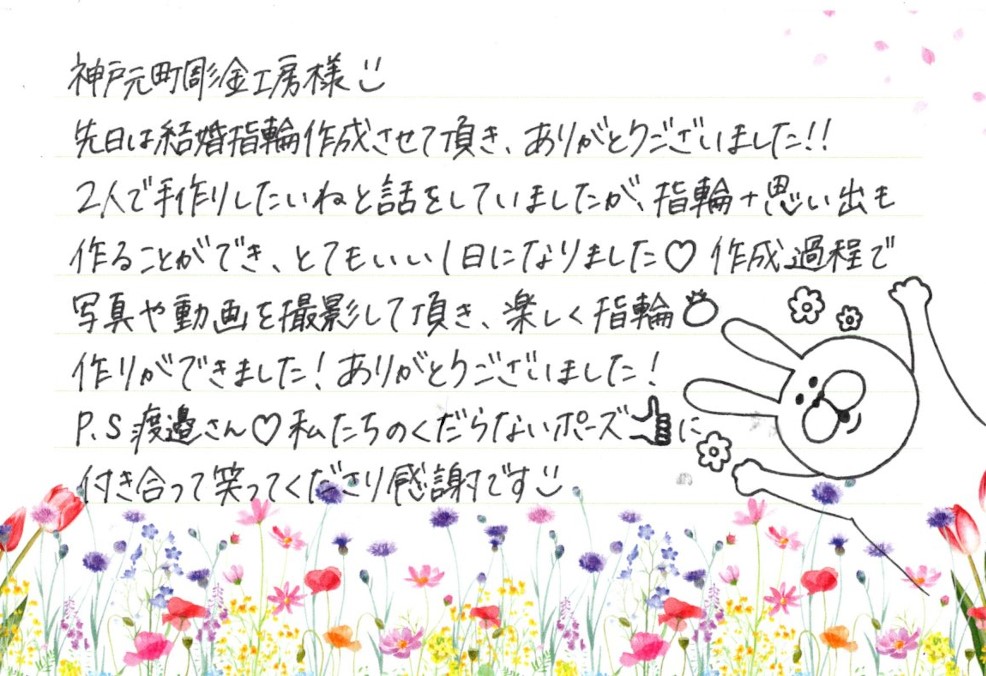 神戸元町彫金工房様
先日は結婚指輪作成させて頂き、ありがとうございました!!
2人で手作りしたいねと話をしていましたが、指輪+思い出も
作ることができ、とてもいい1日になりました♡ 作成過程で
写真や動画を撮影して頂き、楽しく指輪
作りができました!ありがとうございました!
P.S 渡邉さん♡私たちのくだらないポーズ👍に
付き合って笑ってくださり感謝です